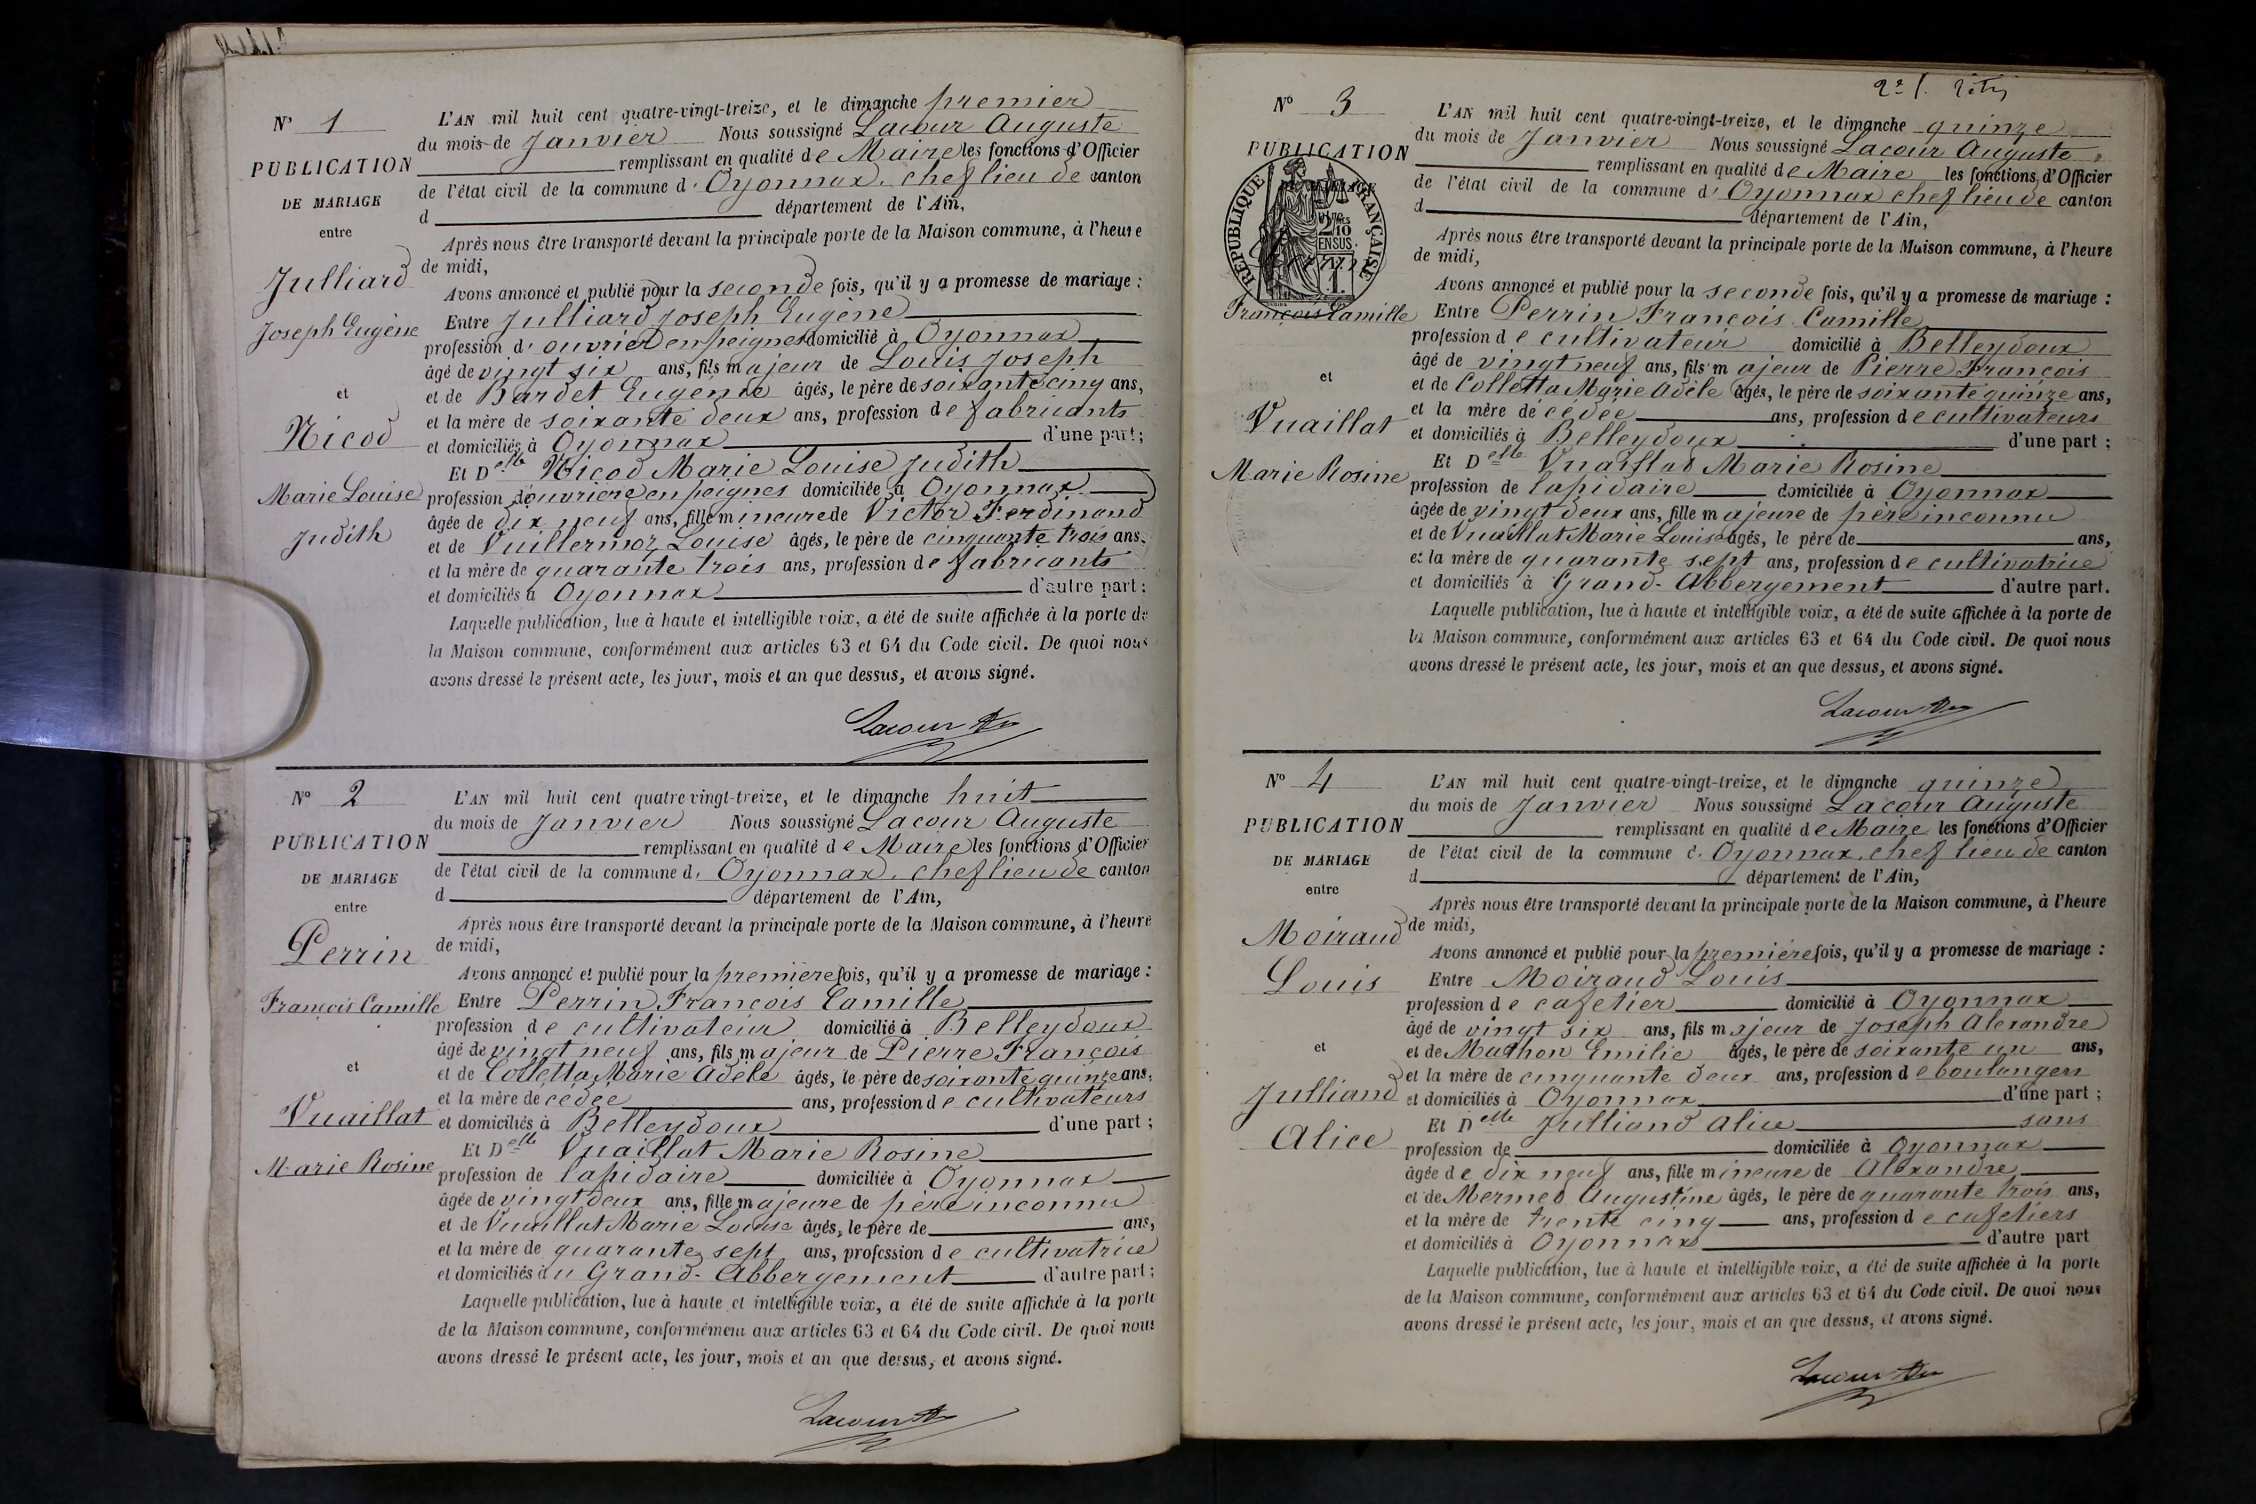 N° 1
PUBLICATION
DE MARIAGE
entre
Julliard
Joseph Eugène
et
Nicod
Marie Louise
Judith
L'AN mil huit cent quatre-vingt-treize, et le dimanche premier
du mois de Janvier Nous soussigné Lacour Auguste
remplissant en qualité de Maire les fonctions d'Officier
de l'état civil de la commune d' Oyonnax, chef lieu de canton
d département de l'Ain,
Après nous être transporté devant la principale porte de la Maison commune, à l'heure
de midi,
Avons annoncé et publié pour la seconde fois, qu'il y a promesse de mariage :
Entre Julliard Joseph Eugène
profession d' ouvrier en peignes domicilié à Oyonnax
âgé de vingt six ans, fils majeur de Louis Joseph
et de Bardet Eugénie âgés, le père de soixante cinq ans,
et la mère de soixante deux ans, profession de fabricants
et domiciliés à Oyonnax d'une part;
Et Delle Nicod Marie Louise Judith
profession d'ouvrière en peignes domiciliée à Oyonnax
âgée de dix neuf ans, fille mineure de Victor Ferdinand
et de Vuillermoz Louise âgés, le père de cinquante trois ans,
et la mère de quarante trois ans, profession de fabricants
et domiciliés à Oyonnax d'autre part;
Laquelle publication, lue à haute et intelligible voix, a été de suite affichée à la porte de
la Maison commune, conformément aux articles 63 et 64 du Code civil. De quoi nous
avons dressé le présent acte, les jour, mois et an que dessus, et avons signé.
Lacour
N° 2
PUBLICATION
DE MARIAGE
entre
Perrin
François Camille
et
Vuaillat
Marie Rosine
L'AN mil huit cent quatre vingt-treize, et le dimanche huit
du mois de Janvier Nous soussigné Lacour Auguste
remplissant en qualité de Maire les fonctions d'Officier
de l'état civil de la commune d' Oyonnax, chef lieu de canton
d département de l'Ain,
Après nous être transporté devant la principale porte de la Maison commune, à l'heure
de midi,
Avons annoncé et publié pour la première fois, qu'il y a promesse de mariage :
Entre Perrin François Camille
profession de cultivateur domicilié à Belleydoux
âgé de vingt neuf ans, fils majeur de Pierre François
et de Colletta Marie Adèle âgés, le père de soixante quinze ans,
et la mère décédée ans, profession de cultivateurs
et domiciliés à Belleydoux d'une part ;
Et Delle Vuaillat Marie Rosine
profession de lapidaire domiciliée à Oyonnax
âgée de vingt deux ans, fille majeure de père inconnu
et de Vuaillat Marie Louise âgés, le père de ans,
et la mère de quarante sept ans, profession de cultivatrice
et domiciliés au Grand-Abbergement d'autre part ;
Laquelle publication, lue à haute et intelligible voix, a été de suite affichée à la porte
de la Maison commune, conformément aux articles 63 et 64 du Code civil. De quoi nous
avons dressé le présent acte, les jour, mois et an que dessus, et avons signé.
Lacour
N° 3
PUBLICATION
RÉPUBLIQUE FRANÇAISE
2/10
EN SUS
François Camille
et
Vuaillat
Marie Rosine
L'AN mil huit cent quatre-vingt-treize, et le dimanche quinze
du mois de Janvier Nous soussigné Lacour Auguste
remplissant en qualité de Maire les fonctions d'Officier
de l'état civil de la commune d' Oyonnax chef lieu de canton
d département de l'Ain,
Après nous être transporté devant la principale porte de la Maison commune, à l'heure
de midi,
Avons annoncé et publié pour la seconde fois, qu'il y a promesse de mariage :
Entre Perrin François Camille
profession de cultivateur domicilié à Belleydoux
âgé de vingt neuf ans, fils majeur de Pierre François
et de Colletta Marie Adèle âgés, le père de soixante quinze ans,
et la mère décédée ans, profession de cultivateurs
et domiciliés à Belleydoux d'une part ;
Et Delle Vuaillat Marie Rosine
profession de lapidaire domiciliée à Oyonnax
âgée de vingt deux ans, fille majeure de père inconnu
et de Vuaillat Marie Louise âgés, le père de ans,
et la mère de quarante sept ans, profession de cultivatrice
et domiciliés à Grand-Abbergement d'autre part.
Laquelle publication, lue à haute et intelligible voix, a été de suite affichée à la porte de
la Maison commune, conformément aux articles 63 et 64 du Code civil. De quoi nous
avons dressé le présent acte, les jour, mois et an que dessus, et avons signé.
Lacour
N° 4
PUBLICATION
DE MARIAGE
entre
Moiraud
Louis
et
Julliand
Alice
L'AN mil huit cent quatre-vingt-treize, et le dimanche quinze
du mois de Janvier Nous soussigné Lacour Auguste
remplissant en qualité de Maire les fonctions d'Officier
de l'état civil de la commune d' Oyonnax, chef lieu de canton
d département de l'Ain,
Après nous être transporté devant la principale porte de la Maison commune, à l'heure
de midi,
Avons annoncé et publié pour la première fois, qu'il y a promesse de mariage :
Entre Moiraud Louis
profession de cafetier domicilié à Oyonnax
âgé de vingt six ans, fils majeur de Joseph Alexandre
et de Mathon Emilie âgés, le père de soixante un ans,
et la mère de cinquante deux ans, profession de boulangers
et domiciliés à Oyonnax d'une part ;
Et Delle Julliand Alice sans
profession de domiciliée à Oyonnax
âgée de dix neuf ans, fille mineure de Alexandre
et de Mermed Augustine âgés, le père de quarante trois ans,
et la mère de trente cinq ans, profession de cafetiers
et domiciliés à Oyonnax d'autre part
Laquelle publication, lue à haute et intelligible voix, a été de suite affichée à la porte
de la Maison commune, conformément aux articles 63 et 64 du Code civil. De quoi nous
avons dressé le présent acte, les jour, mois et an que dessus, et avons signé.
Lacour